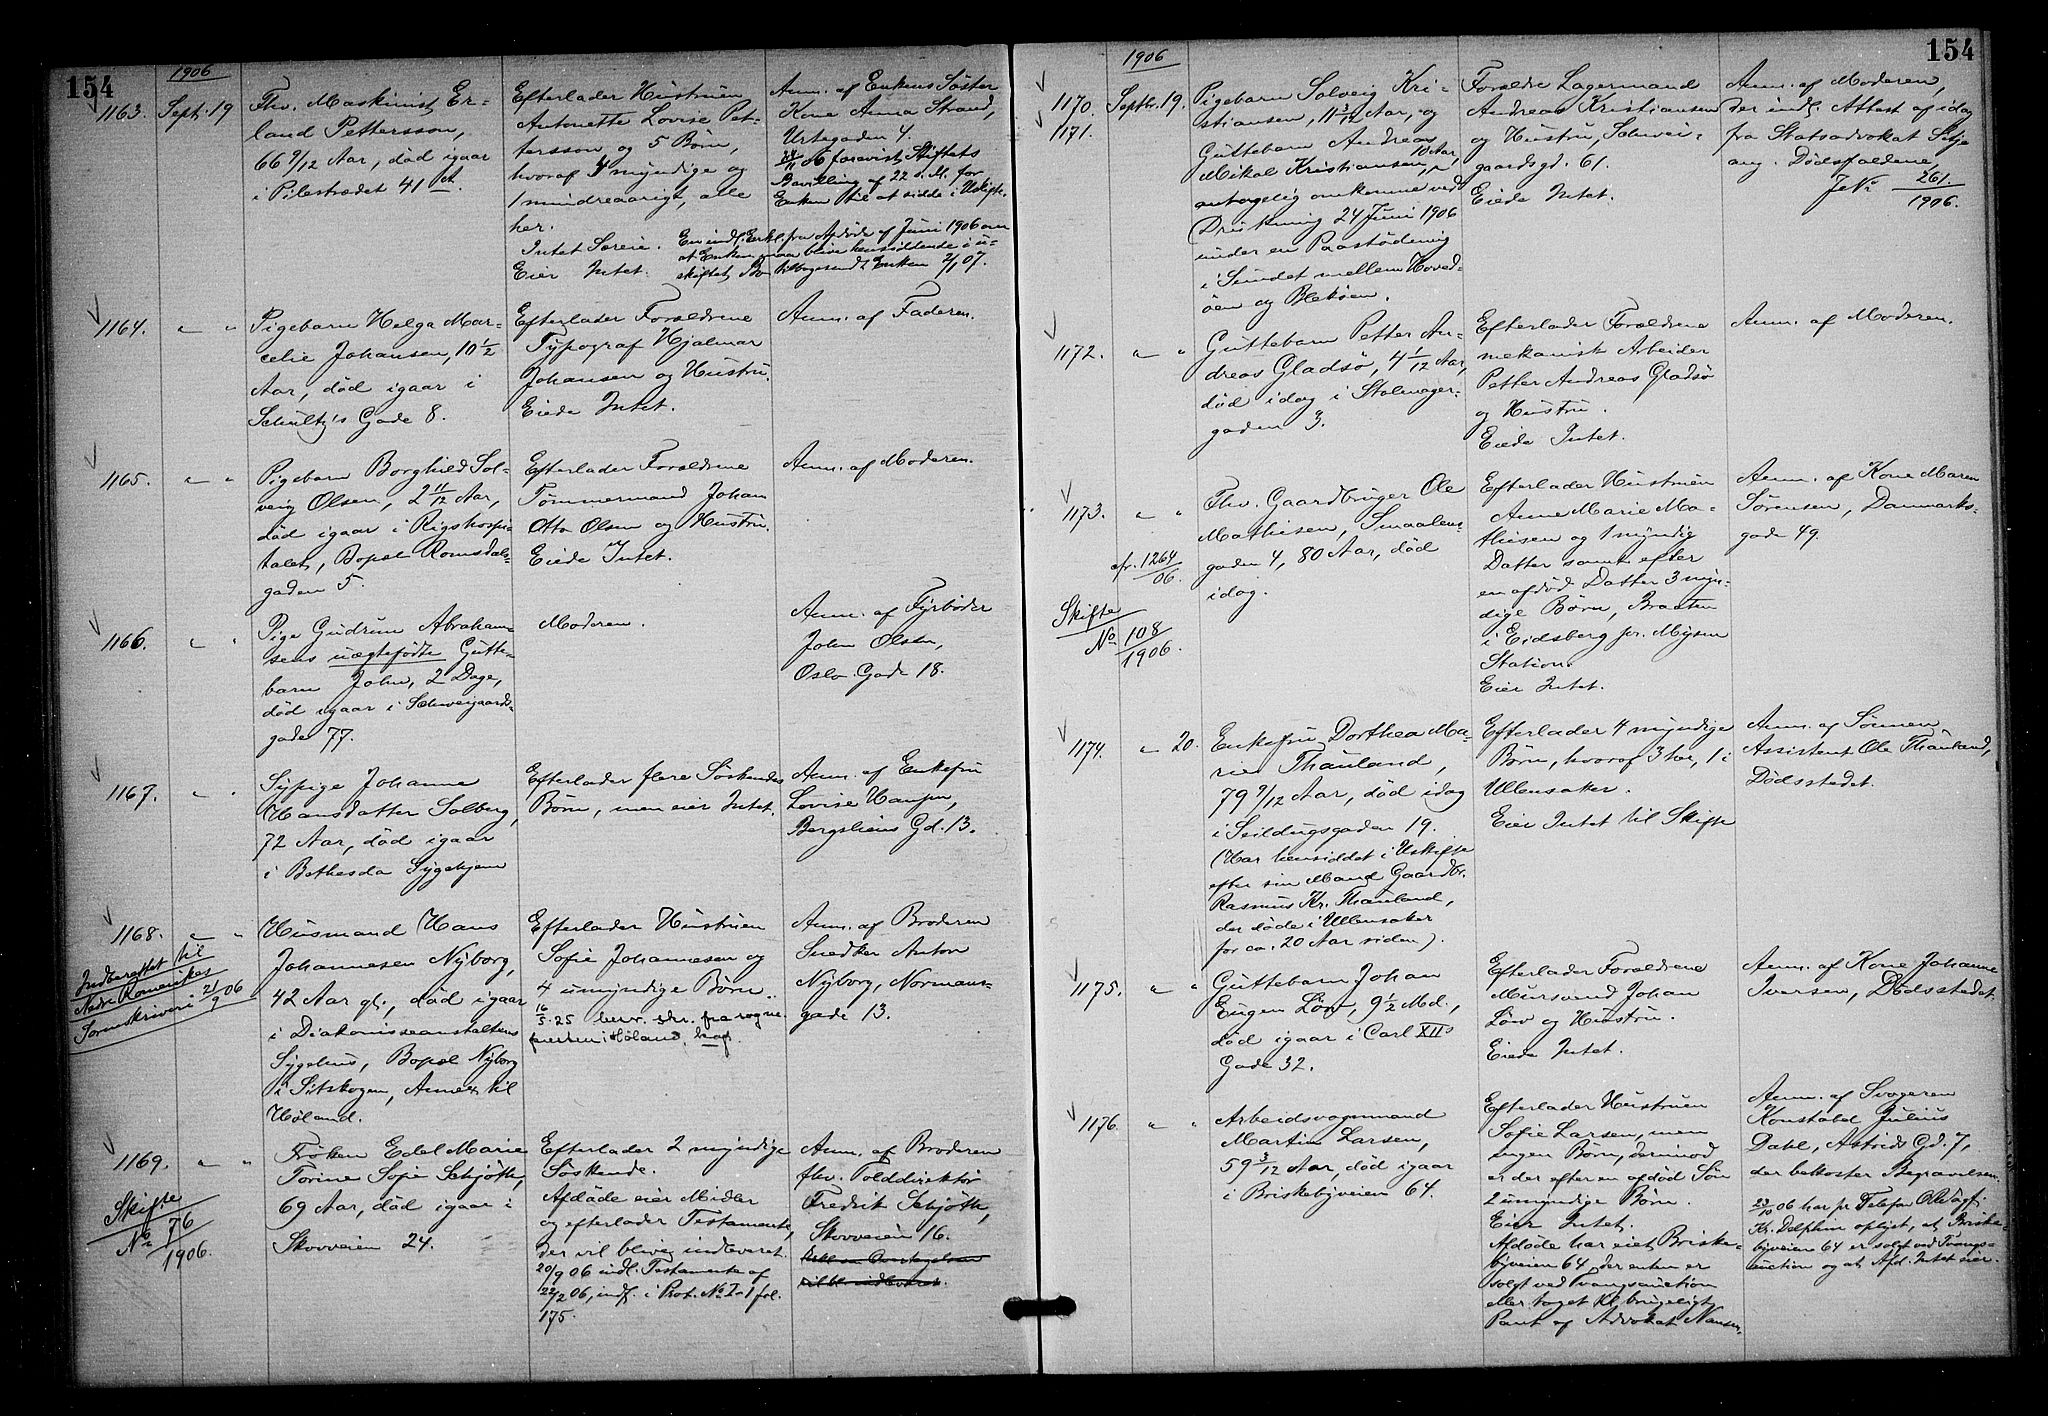 154
1906
1163. Sept. 19
Fhv. Maskinist Er-
land Pettersson,
66 9/12 Aar, død igaar
i Pilestrædet 41 A.
Efterlader Hustruen
Antonette Lovise Pet-
tersson og 5 Børn,
hvoraf 4 myndige og
1 mindreaarigt, alle
her.
Intet Særeie.
Eier Intet.
Anm. af Enkens Søster
Kone Anna Strand,
Urtegaden 4.
forevist Stiftets
Bevilling af 22 s. M. for
Enken til at sidde i Uskifte.
En indl. Erkl. fra Afdøde af Juni 1906 om
at Enken maa blive hensiddende i u-
skiftet Bo tilbagesendt Enken 2/1 07.
1164. " "
Pigebarn Helga Mar-
celie Johansen, 10 1/2
Aar, død igaar i
Schultz's Gade 8.
Efterlader Forældrene
Typograf Hjalmar
Johansen og Hustru.
Eiede Intet.
Anm. af Faderen.
1165. " "
Pigebarn Borghild Sol-
veig Olsen, 2 11/12 Aar,
død igaar i Rigshospi-
talet, Bopæl Romsdals-
gaden 5.
Efterlader Forældrene
Tømmermand Johan
Otto Olsen og Hustru.
Eiede Intet.
Anm. af Moderen.
1166. " "
Pige Gudrun Abraham-
sens uægtefødte Gutte-
barn John, 2 Dage,
død igaar i Schweigaards-
gade 77.
Moderen.
Anm. af Fyrbøder
John Olsen,
Oslo Gade 18.
1167. " "
Sypige Johanne
Hansdatter Solberg,
72 Aar, død igaar
i Bethesda Sygehjem
Efterlader flere Søskendes
Børn, men eier Intet.
Anm. af Enkefru
Lovise Hansen,
Bergsliens Gd. 13.
1168. " "
Indberettet til
Nedre Romerikes
Sorenskriveri 21/9 06
Husmand Hans
Johannesen Nyborg,
42 Aar gl., død igaar
i Diakonisseanstaltens
Sygehus, Bopæl Nyborg
i Sitskogen, Annex til
Høland.
Efterlader Hustruen
Sofie Johannesen og
4 umyndige Børn.
16/5.25 besv. skr. fra sogne-
presten i Høland,
Anm. af Broderen
Snedker Anton
Nyborg, Normans-
gade 13.
1169. " "
Skifte
No 76/1906.
Frøken Edel Marie
Torine Sofie Schjøth,
69 Aar, død igaar i
Skovveien 24.
Efterlader 2 myndige
Søskende.
Afdøde eier Midler
og efterlader Testamente,
der vil blive indleveret.
20/9 06 indl. Testamente af
22/2 06, indf. i Prot. No I-1 fol.
175.
Anm. af Broderen
fhv. Tolddirektør
Fredrik Schjøth,
Skovveien 16.
154
1906
1170. Septbr. 19.
1171.
Pigebarn Solveig Kri-
stiansen, 11 3/12 Aar, og
Guttebarn Andreas
Mikal Kristiansen, 10 Aar,
antagelig omkomne ved
Drukning 24 Juni 1906
under en Paaseiling
i Sundet mellem Hoved-
øen og Bleikøen.
Forældre Lagermand
Andreas Kristiansen
og Hustru, Schwei-
gaardsgd. 61.
Eiede Intet.
Anm. af Moderen,
der indl. Attest af idag
fra Statsadvokat
ang. Dødsfaldene,
JNo 261./1906.
1172. " "
Guttebarn Petter An-
dreas Gladsø, 4 1/12 Aar,
død idag i Stolmager-
gaden 3.
Efterlader Forældrene
mekanisk Arbeider
Petter Andreas Gladsø
og Hustru.
Eiede Intet.
Anm. af Moderen.
1173. " "
cfr. 1264/06.
Skifte
No 108/1906.
Fhv. Gaardbruger Ole
Mathisen, Smaalens-
gaden 4, 80 Aar, død
idag.
Efterlader Hustruen
Anne Marie Ma-
thisen og 1 myndig
Datter samt efter
en afdød Datter 3 myn-
dige Børn, Braaten
i Eidsberg pr. Mysen
Station.
Eier Intet.
Anm. af Kone Maren
Sørensen, Danmarks-
gade 49.
1174. " 20.
Enkefru Dorthea Ma-
rie Thauland,
79 9/12 Aar, død idag
i Seildugsgaden 19.
(Har hensiddet i Uskifte
efter sin Mand Gaardbr.
Rasmus Kr. Thauland,
der døde i Ullensaker
for ca. 20 Aar siden).
Efterlader 4 myndige
Børn, hvoraf 3 her, 1 i
Ullensaker.
Eier Intet til Skifte
Anm. af Sønnen
Assistent Ole Thauland,
Dødsstedet.
1175. " "
Guttebarn Johan
Eugen Löw, 9 1/2 Md.,
død igaar i Carl XIIs
Gade 32.
Efterlader Forældrene
Mursvend Johan
Löw og Hustru.
Eiede Intet.
Anm. af Kone Johanne
Iversen, Dødsstedet.
1176. " "
Arbeidsvognmand
Martin Larsen,
59 3/12 Aar, død igaar
i Briskebyveien 64.
Efterlader Hustruen
Sofie Larsen, men
ingen Børn, derimod
er der efter en afdød Søn
2 umyndige Børn.
Eier Intet.
Afdøde har eiet Briske-
byveien 64, der enten er
solgt ved Tvangsauction
eller taget til brugeligt
Pant af Advokat Nansen.
Anm. af Svogeren
Konstabel Julius
Dahl, Astrids Gd. 7,
der bekoster Begravelsen.
23/10 06 har pr Telefon
Kr. Delphin oplyst, at Briske-
byveien 64 er solgt ved Tvangs-
auction og at Afd. Intet eier.